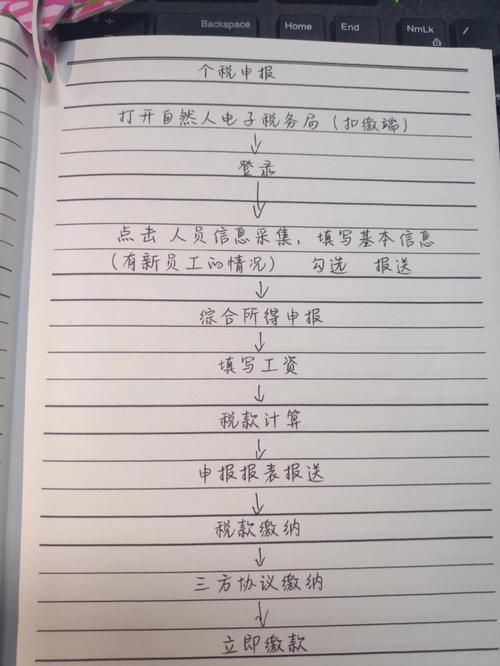 Backspace Home End NmLk /
个税申报
打开自然人电子税务局(扣缴端)
↓
登录
↓
点击 人员信息采集, 填写基本信息
(有新员工的情况) 勾选 报送
↓
综合所得申报
↓
填写工资
↓
税款计算
↓
申报报表报送
↓
税款缴纳
↓
三方协议缴纳
↓
立即缴款